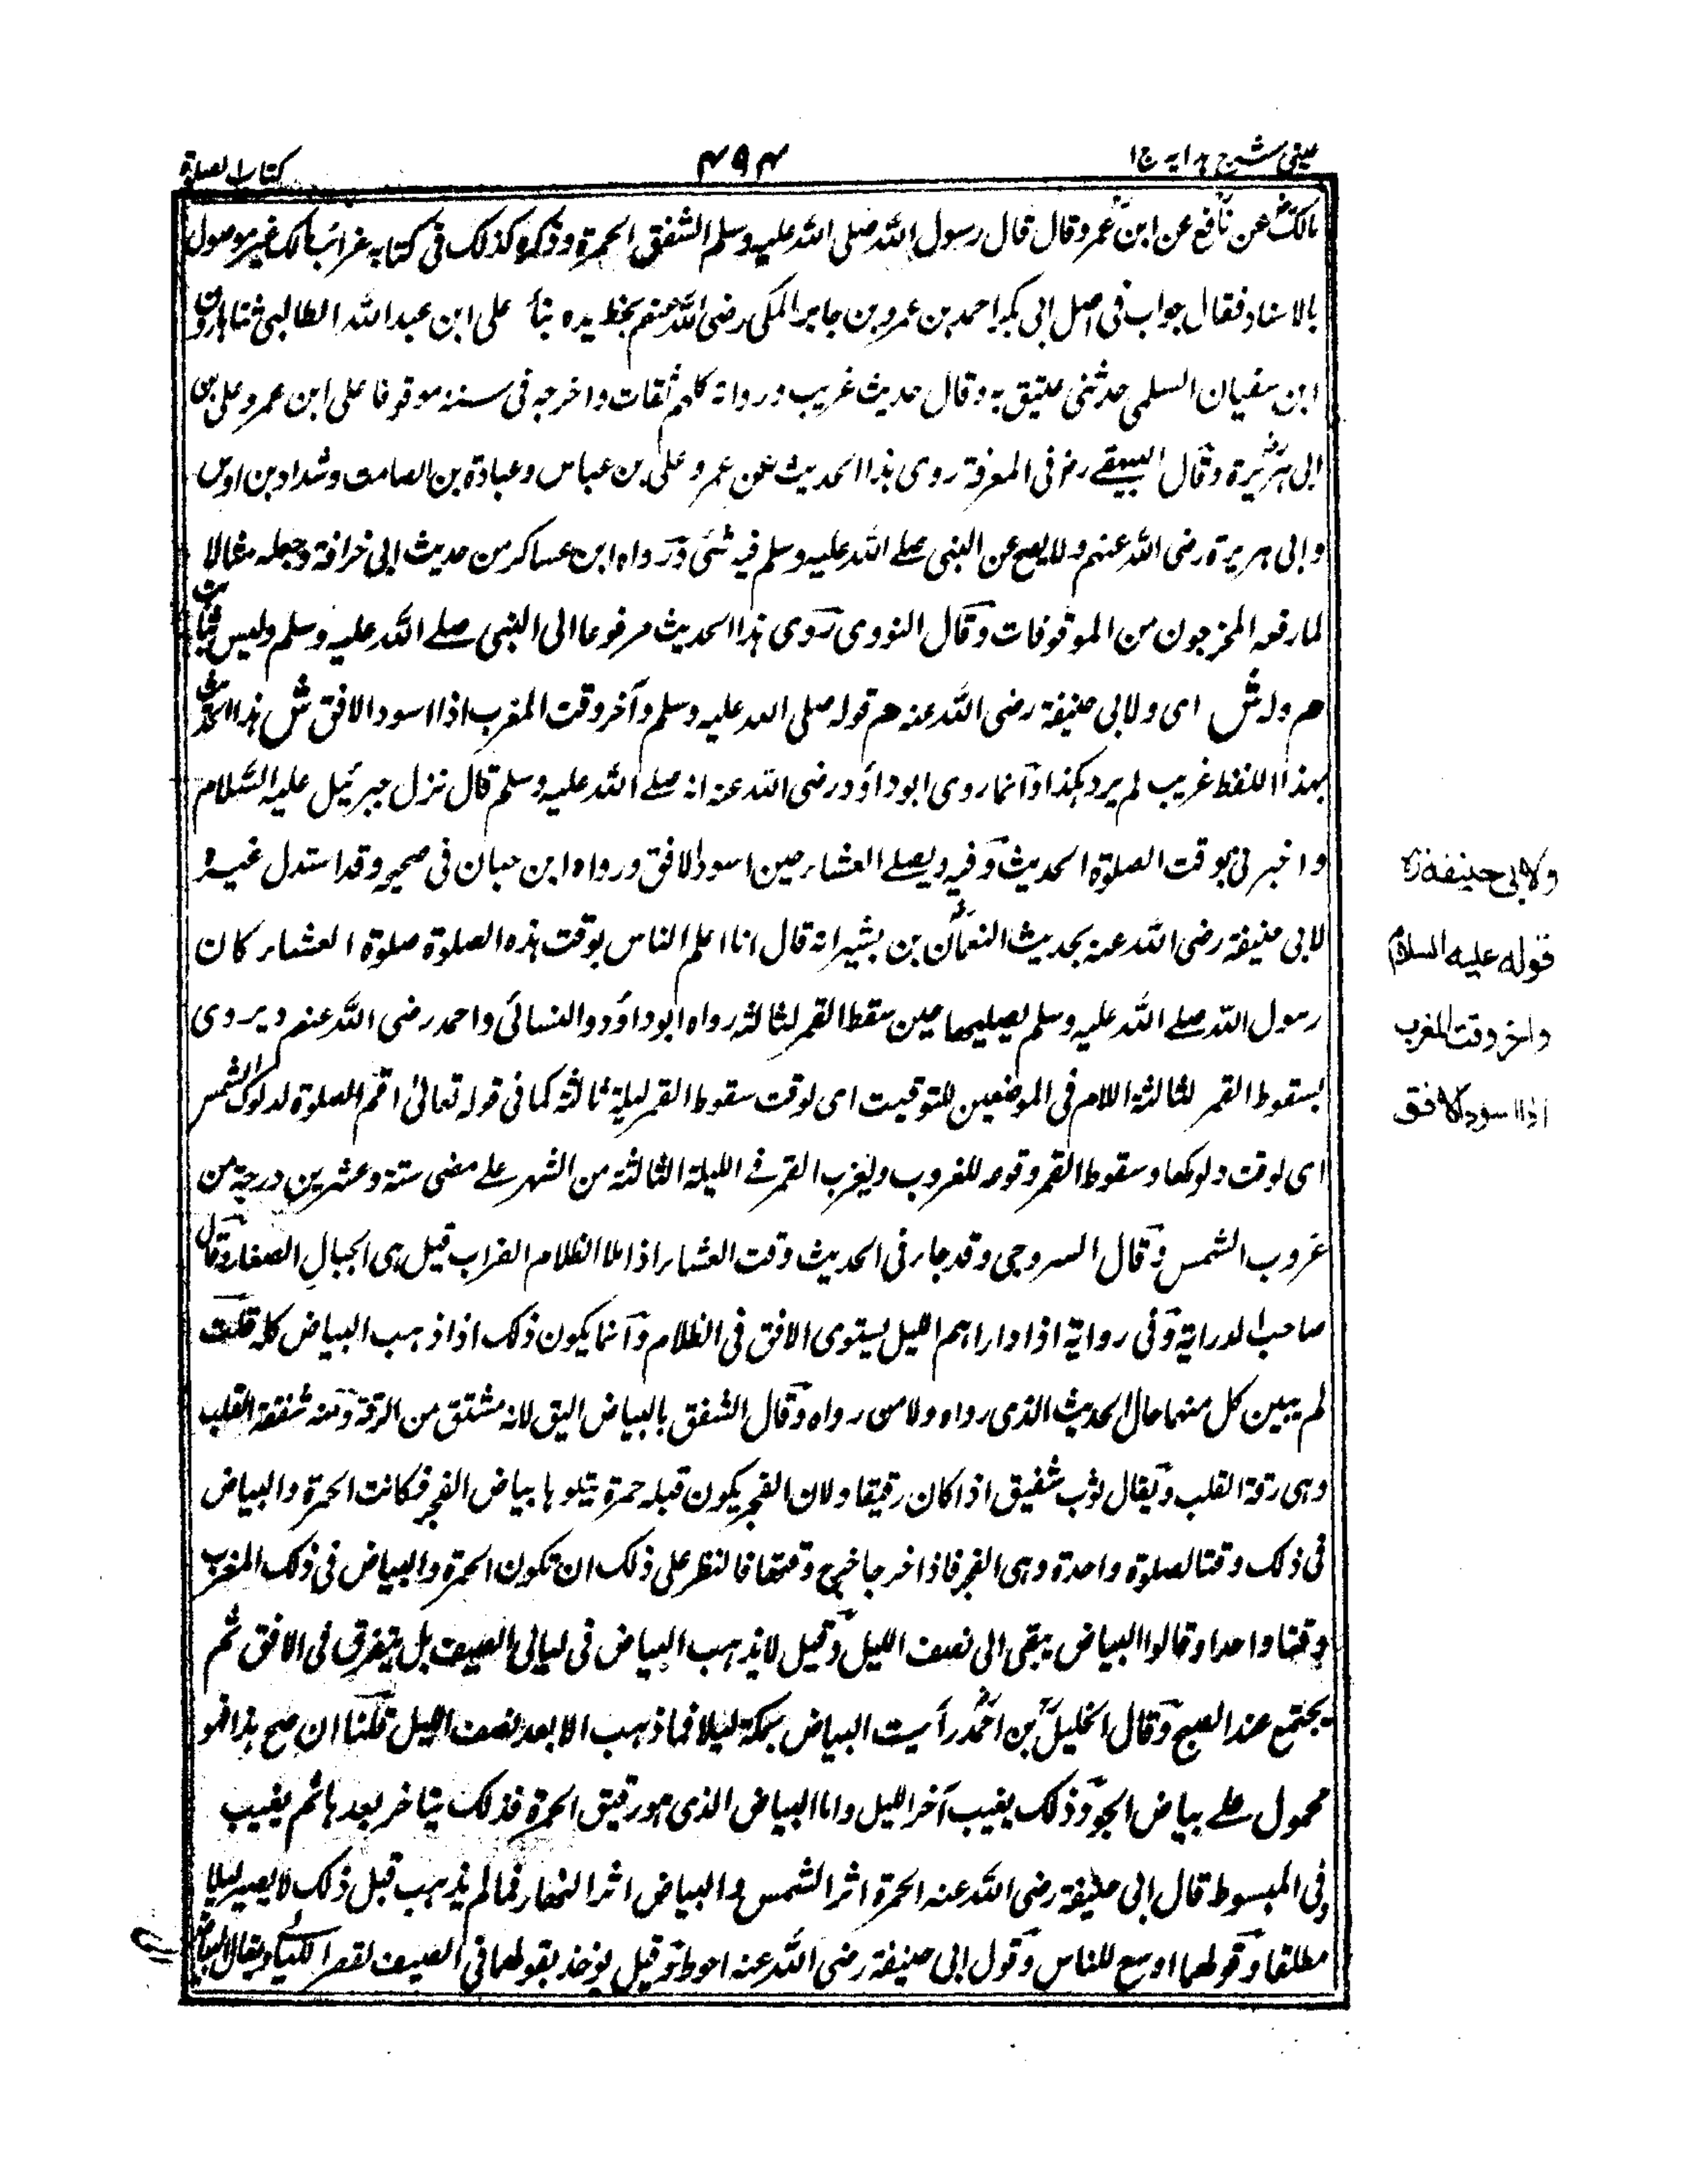 عینی شرح ہدایہ ج ا
۴۹۴
کتاب الصلوة
مالک عن نافع عن ابن عمر وقال قال رسول الله صلى الله عليه وسلم الشفق الحمرة وذكره كذلك فى كتابه غرائب مالك غير موصول
بالاسناد فقال جواب فى اصل ابى بكر احمد بن عمرو بن جابر المكى رضى الله عنهم بخط يده نبأ على ابن عبد الله الطالبى ثنا هارون
ابن سفيان السلمى حدثنى عتيق به وقال حديث غريب ورواته كلهم ثقات واخرجه فى سننه موقوفا على ابن عمرو على بن
ابى هريرة وقال البيهقے رض فى المعرفة روى هذا الحديث عن عمرو على بن عباس وعبادة بن الصامت وشداد بن اوس
وابى هريرة رضى الله عنهم ولا يصح عن النبى صلے الله عليه وسلم فيه شئ ورواه ابن عساكر من حديث ابى خرافة وجعله مثالا
لما رفعه المخرجون من الموقوفات وقال النووى روى هذا الحديث مرفوعا الى النبى صلے الله عليه وسلم وليس بثابت
هم وله ش اى ولابى حنيفة رضى الله عنه هم قوله صلى الله عليه وسلم وآخر وقت المغرب اذا اسود الافق ش هذا الحديث
بهذا اللفظ غريب لم يرد هكذا وانما روى ابو داؤد رضى الله عنه انه صلے الله عليه وسلم قال نزل جبرئيل عليه السلام
واخبرنى بوقت الصلوة الحديث وفيه ويصلے العشاء حين اسود الافق ورواه ابن حبان فى صحيحه وقد استدل غيره
لابى حنيفة رضى الله عنه بحديث النعمان بن بشير انه قال انا اعلم الناس بوقت هذه الصلوة صلوة العشاء كان
رسول الله صلے الله عليه وسلم يصليها حين سقط القمر لثالثة رواه ابو داؤد والنسائى واحمد رضى الله عنهم ويروى
لسقوط القمر لثالثة اللام فى الموضعين للتوقيت اى لوقت سقوط القمر ليلة ثالثة كما فى قوله تعالى اقم الصلوة لدلوك الشمس
اى لوقت دلوكها وسقوط القمر وقوعه للغروب ويغرب القمر فے الليلة الثالثة من الشهر علے مضى ستة وعشرين درجة من
غروب الشمس وقال السروجى وقد جاء فى الحديث وقت العشاء اذا ملأ الظلام الضراب قيل هى الجبال الصغار وقال
صاحب الدراية وفى رواية اذا ادارأهم الليل يستوى الافق فى الظلام وانما يكون ذلك اذا ذهب البياض كله قلت
لم يبين كل منهما حال الحديث الذى رواه ولا من رواه وقال الشفق بالبياض اليق لانه مشتق من الرقة ومنه شفقة القلب
وهى رقة القلب ويقال ثوب شفيق اذا كان رقيقا ولان الفجر يكون قبله حمرة يتلوها بياض الفجر فكانت الحمرة والبياض
فى ذلك وقتا لصلوة واحدة وهى الفجر فاذا خرجا خرج وقتها فالنظر على ذلك ان تكون الحمرة والبياض فى ذلك المغرب
وقتا واحدا وقالوا البياض يبقى الى نصف الليل وقيل لا يذهب البياض فى ليالى الصيف بل يتفرق فى الافق ثم
يجتمع عند الصبح وقال الخليل بن احمد رأيت البياض بمكة ليلا فما ذهب الا بعد نصف الليل قلنا ان صح هذا فهو
محمول علے بياض الجو وذلك يغيب آخر الليل واما البياض الذى هو رقيق الحمرة فذلك يتاخر بعدها ثم يغيب
وفى المبسوط قال ابى حنيفة رضى الله عنه الحمرة اثر الشمس والبياض اثر النهار فما لم يذهب قبل ذلك لا يصير ليلا
مطلقا وقولهما اوسع للناس وقول ابى حنيفة رضى الله عنه احوط وقيل يوخذ بقولهما فى الصيف لقصر الليالے ويقال البياض
ولابى حنيفة رح
قوله عليه السلام
واخر وقت المغرب
اذا اسود الافق